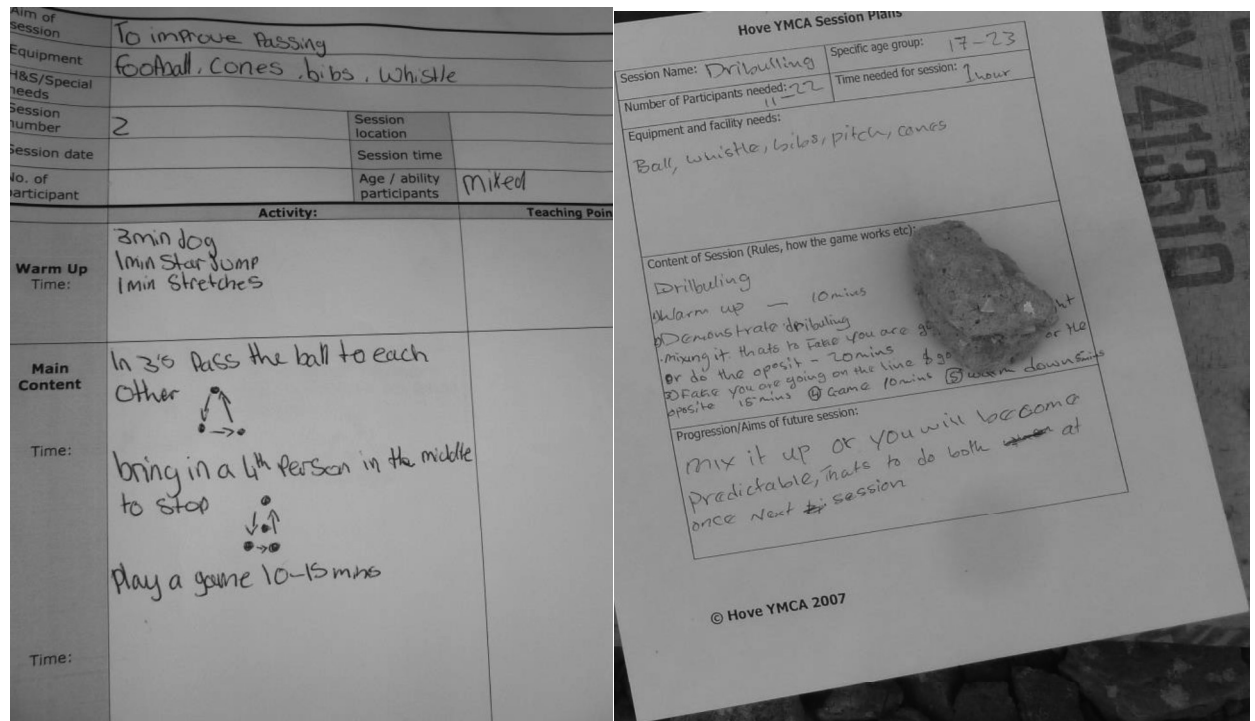 Aim of
session
To improve Passing
Equipment
football, Cones, bibs, Whistle
H&S/Special
needs
Session
number
2
Session
location
Session date
Session time
No. of
participant
Age / ability
participants
mixed
Activity:
Teaching Poin
Warm Up
Time:
3min Jog
1min Star Jump
1min Stretches
Main
Content
In 3's Pass the ball to each
Other
Time:
bring in a 4th Person in the middle
to stop
Play a game 10-15 mins
Time:
Hove YMCA Session Plans
Session Name: Dribulling
Specific age group: 17-23
Number of Participants needed: 11-22
Time needed for session: 1 hour
Equipment and facility needs:
Ball, whistle, bibs, pitch, cones
Content of Session (Rules, how the game works etc):
Drilbuling
1) Warm up — 10mins
Demonstrate dribuling
mixing it. thats to Fake you are
or do the oposit - 20mins
3) Fake you are going on the line & go or the
oposite 15mins ④ Game 10mins ⑤ warm down 5mins
Progression/Aims of future session:
mix it up or you will become
Predictable, Thats to do both at
once Next session
© Hove YMCA 2007
EX 413510